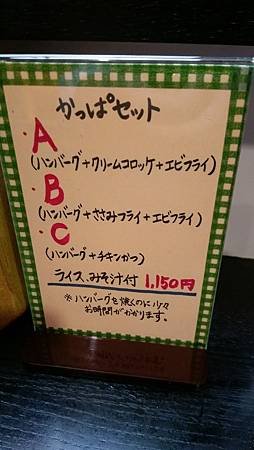 かっぱセット
・A
(ハンバーグ+クリームコロッケ+エビフライ)
・B
(ハンバーグ+ささみフライ+エビフライ)
・C
(ハンバーグ+チキンかつ)
ライス、みそ汁付 1,150円
※ハンバーグを焼くのに少々
お時間がかかります。